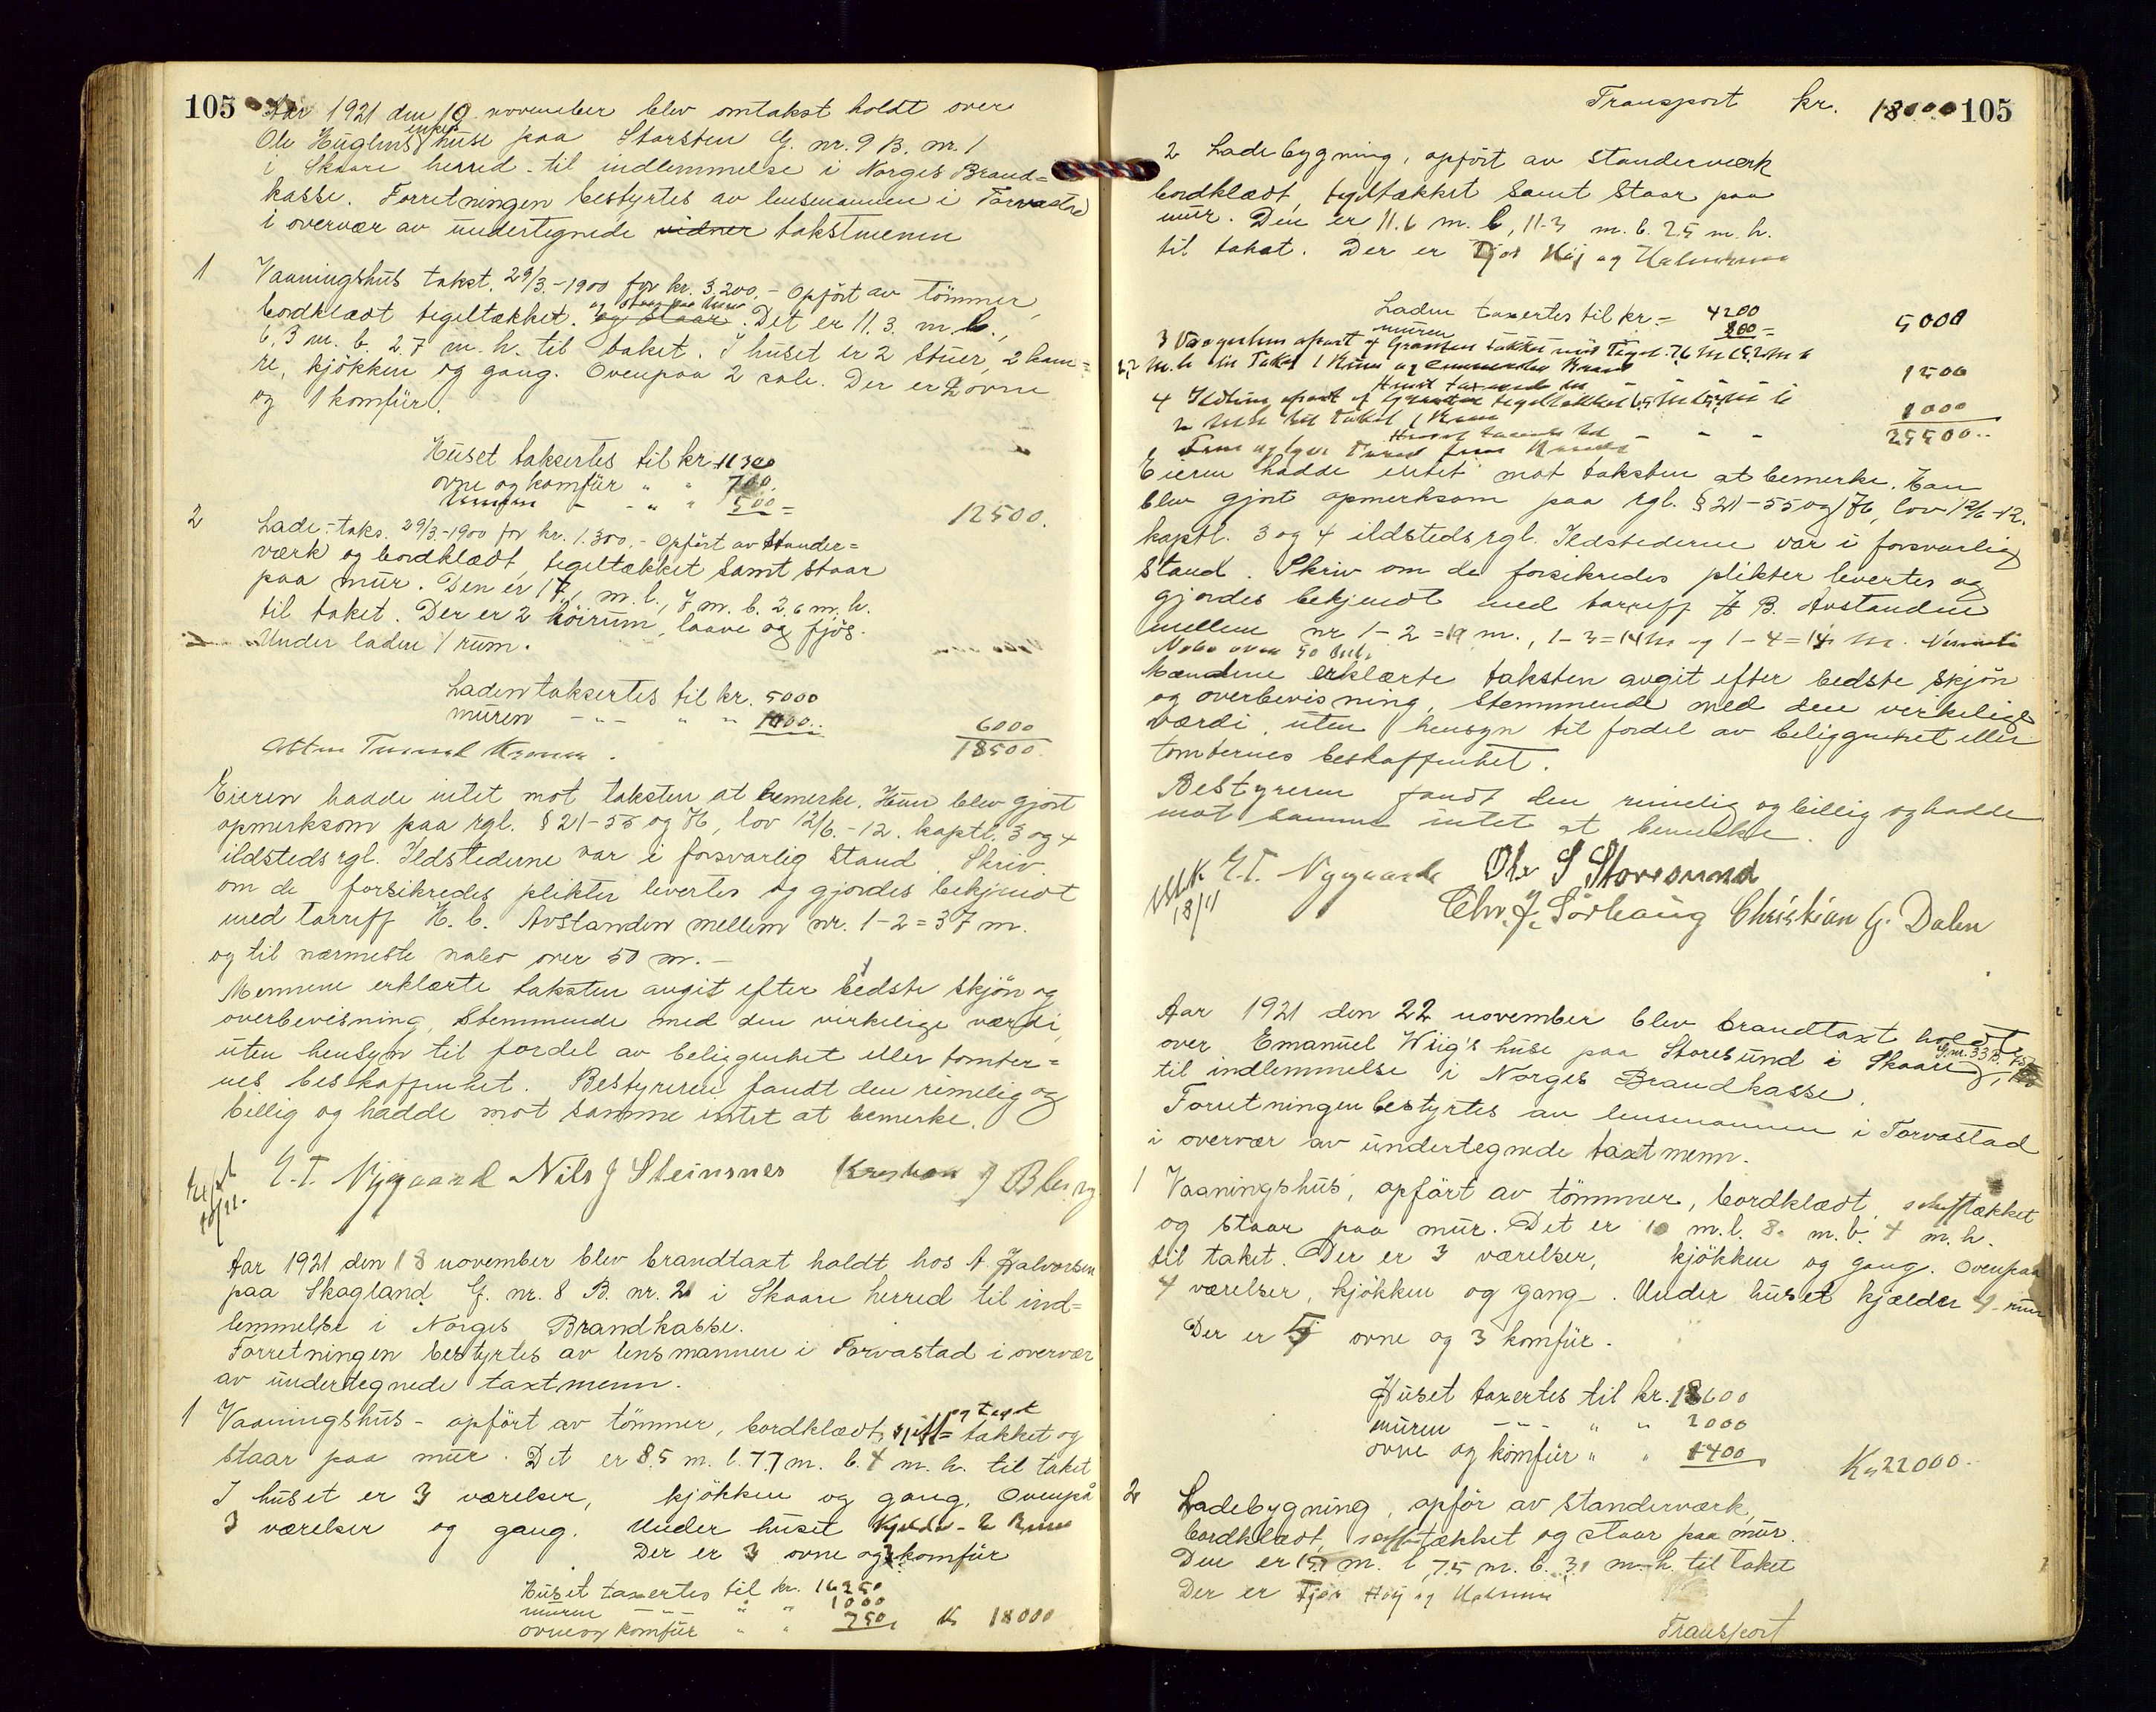 105
Aar 1921 den 10 november blev omtakst holdt over
Ole Huglens enkes huse paa Storsten G. nr. 9 B. nr. 1
i Skaare herred til indlemmelse i Norges Brand=
kasse. Forretningen bestyrtes av lensmannen i Torvastad
i overvær av undertegnede vidner takstmenn
1 Vaaningshus takst. 29/3.-1900 for kr. 3.200.- Opført av tömmer,
bordklædt tegeltækket. og staar og staar paa mur. Det er 11.3. m. l.,
6,3 m. b. 2.7 m. h. til taket. I huset er 2 stuer, 2 kam=
re, kjökken og gang. Ovenpaa 2 sale. Der er 2 ovne
og 1 komfür.
Huset taksertes til kr. 11300
ovne og komfür " " 700.
muren - - " " 500 =
12500.
2 Lade - taks. 29/3.-1900 for kr. 1.300.- Opfört av stander=
værk og bordklædt, tegeltækket samt staar
paa mur. Den er 17,1 m. l., 7 m. b. 2.6 m. h.
til taket. Der er 2 höirum, laave og fjös.
Under laden 1 rum.
Laden taksertes til kr. 5000
muren - - - " " 1000..
6000
18500.
Atten Tusind Kroner.
Eieren hadde intet mot taksten at bemerke. Hun blev gjort
opmerksom paa rgl. § 21-55 og 76, lov 12/6.-12. kaptl. 3 og 4
ildsteds rgl. Ildstederne var i forsvarlig stand. Skriv.
om de forsikredes plikter levertes og gjordes bekjendt
med tarriff H. b. Avstanden mellem nr. 1-2 = 37 m.
og til nærmeste nabo over 50 m. -
Mennene erklærte taksten avgit efter bedste skjön og
overbevisning, stemmende med den virkelige værdi,
uten hensyn til fordel av beliggenhet eller tomter=
nes beskaffenhet. Bestyreren fandt den rimelig og
billig og hadde mot samme intet at bemerke.
E. T. Nygaard Nils J Steinsnes J
Aar 1921 den 18 november blev brandtaxt holdt hos A. Halvorsen
paa Skagland G. nr. 8 B. nr. 21 i Skaare herred til ind=
lemmelse i Norges Brandkasse.
Forretningen bestyrtes av lensmannen i Torvastad i overvær
av undertegnede taxtmenn.
1 Vaaningshus - opfört av tömmer, bordklædt, skiff= og tegel tækket og
staar paa mur. Det er 8.5 m. l. 7.7 m. b. 4 m. h. til taket
I huset er 3 værelser, kjökken og gang. Ovenpå
3 værelser og gang. Under huset Kjelder - 2 Rum
Der er 3 ovne og 2 komfür
Huset taxertes til kr. 16250
murene - - - " " 1000
ovne og komfür " " 750 Kr 18000
Transport kr. 18000 105
2 Ladebygning, opfört av standerværk
bordklædt, tegltækket samt staar paa
mur. Den er 11.6 m. l, 11.3 m. b. 2.5 m. h.
til taket. Der er Fjos Höj og
Laden taxertes til kr. = 4200
muren 800 =
5000
3
2,2 m. h til Taket 1 Rum og
1500
4 Ildhus
2 til Taket 1 Rum
1000
25500..
Fem og tyve Tusind fem Hundre
Eieren hadde intet mot taksten at bemerke. Han
blev gjort opmerksom paa rgl. § 21-55 og 76, lov 12/6-12.
kaptl. 3 og 4 ildsteds rgl. Ildstederne var i forsvarlig
stand. Skriv om de forsikredes plikter levertes og
gjordes bekjendt med tarriff H B. Avstanden
mellem nr 1-2 = 19 m., 1-3 = 14 m og 1-4 = 14 m.
Nabo over 50 m.
Mændene erklærte taksten avgit efter bedste skjön
og overbevisning, stemmende med den verkelige
værdi, uten hensyn til fordel av beliggenhet eller
tomternes beskaffenhet.
Bestyreren fandt den rimelig og billig og hadde
mot samme intet at bemerke.
18/11 E. T. Nygaard Ole S Storesund
Chr. J. Sörhaug Christian G. Dalen
Aar 1921 den 22 november blev brandtaxt holdt
over Emanuel Wiig's huse paa Storesund i Skaare G.nr. 33 B.
til indlemmelse i Norges Brandkasse.
Forretningen bestyrtes av lensmannen i Torvastad
i overvær av undertegnede taxtmenn.
1 Vaaningshus, opfört av tömmer, bordklædt, skiffertækket
og staar paa mur. Det er 10 m. l. 8. m. b. 4 m. h.
til taket. Der er 3 værelser, kjökken og gang. Ovenpaa
4 værelser, kjökken og gang. Under huset kjælder 4 rum
Der er 5 ovne og 3 komfür.
Huset taxertes til kr. 18600
muren - - - " " 2000
ovne og komfür " " 1400
Kr 22000.
2 Ladebygning, opför av standerværk,
bordklædt, skiffertækket og staar paa mur.
Den er m. l 7.5 m. b. 3,1 m. h. til taket
Der er Fjos Höj og
Transport